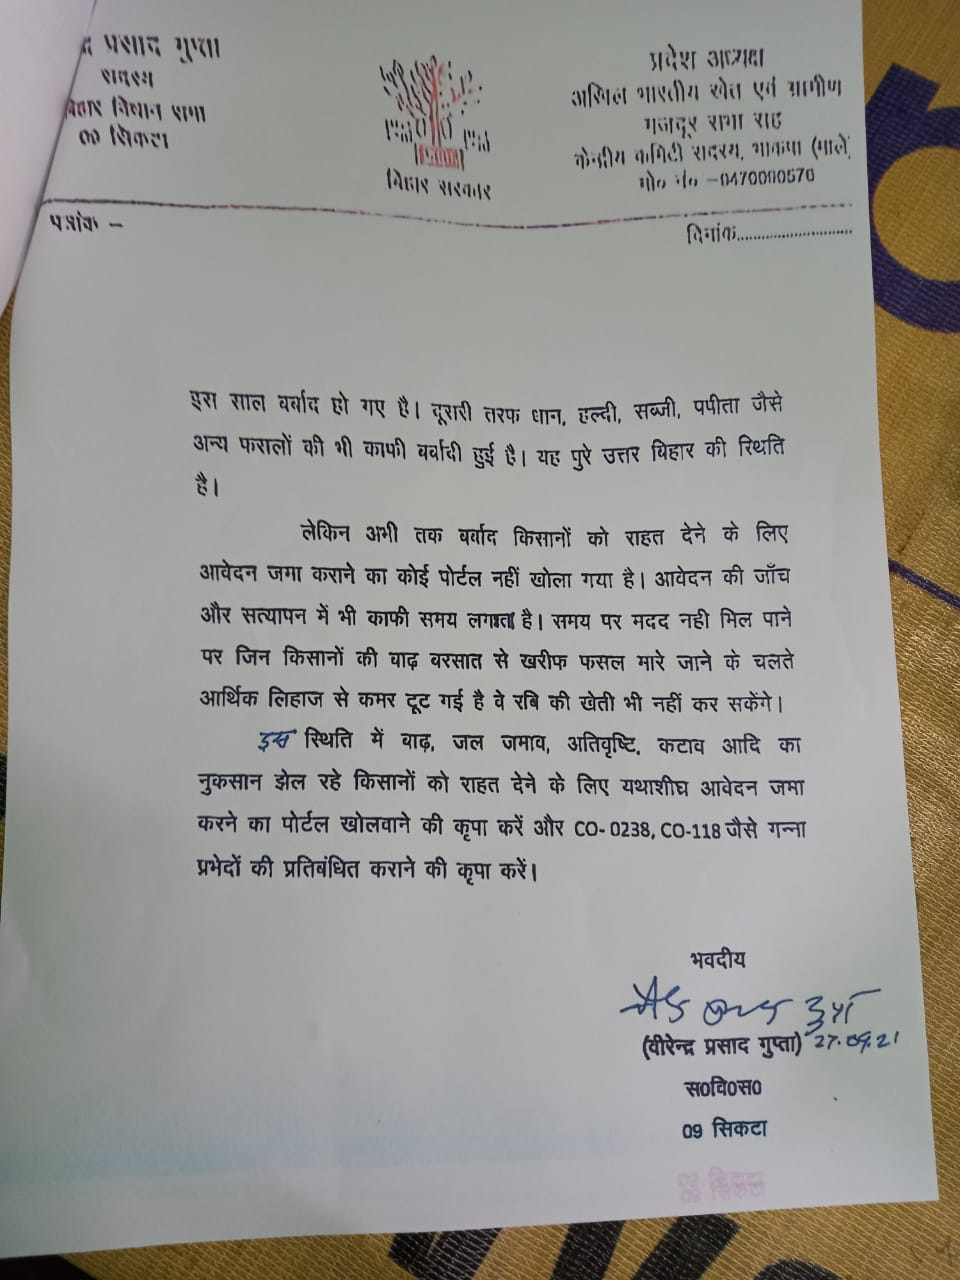 प्रसाद गुप्ता
सदस्य
बिहार विधान सभा
09 सिकटा
बिहार सरकार
प्रदेश अध्यक्ष
अखिल भारतीय खेत एवं ग्रामीण
मजदूर सभा सह
केन्द्रीय कमिटी सदस्य, भाकपा (माले)
मो० नं० –
पत्रांक –
दिनांक............................
इस साल बर्बाद हो गए है। दूसरी तरफ धान, हल्दी, सब्जी, पपीता जैसे
अन्य फसलों की भी काफी बर्बादी हुई है। यह पुरे उत्तर बिहार की स्थिति
है।
लेकिन अभी तक बर्बाद किसानों को राहत देने के लिए
आवेदन जमा कराने का कोई पोर्टल नहीं खोला गया है। आवेदन की जाँच
और सत्यापन में भी काफी समय लगता है। समय पर मदद नही मिल पाने
पर जिन किसानों की बाढ़ बरसात से खरीफ फसल मारे जाने के चलते
आर्थिक लिहाज से कमर टूट गई है वे रबि की खेती भी नहीं कर सकेंगे।
इस स्थिति में बाढ़, जल जमाव, अतिवृष्टि, कटाव आदि का
नुकसान झेल रहे किसानों को राहत देने के लिए यथाशीघ्र आवेदन जमा
करने का पोर्टल खोलवाने की कृपा करें और CO- 0238, CO-118 जैसे गन्ना
प्रभेदों की प्रतिबंधित कराने की कृपा करें।
भवदीय
(वीरेन्द्र प्रसाद गुप्ता) 27.09.21
स0वि0स0
09 सिकटा
09 सिकटा